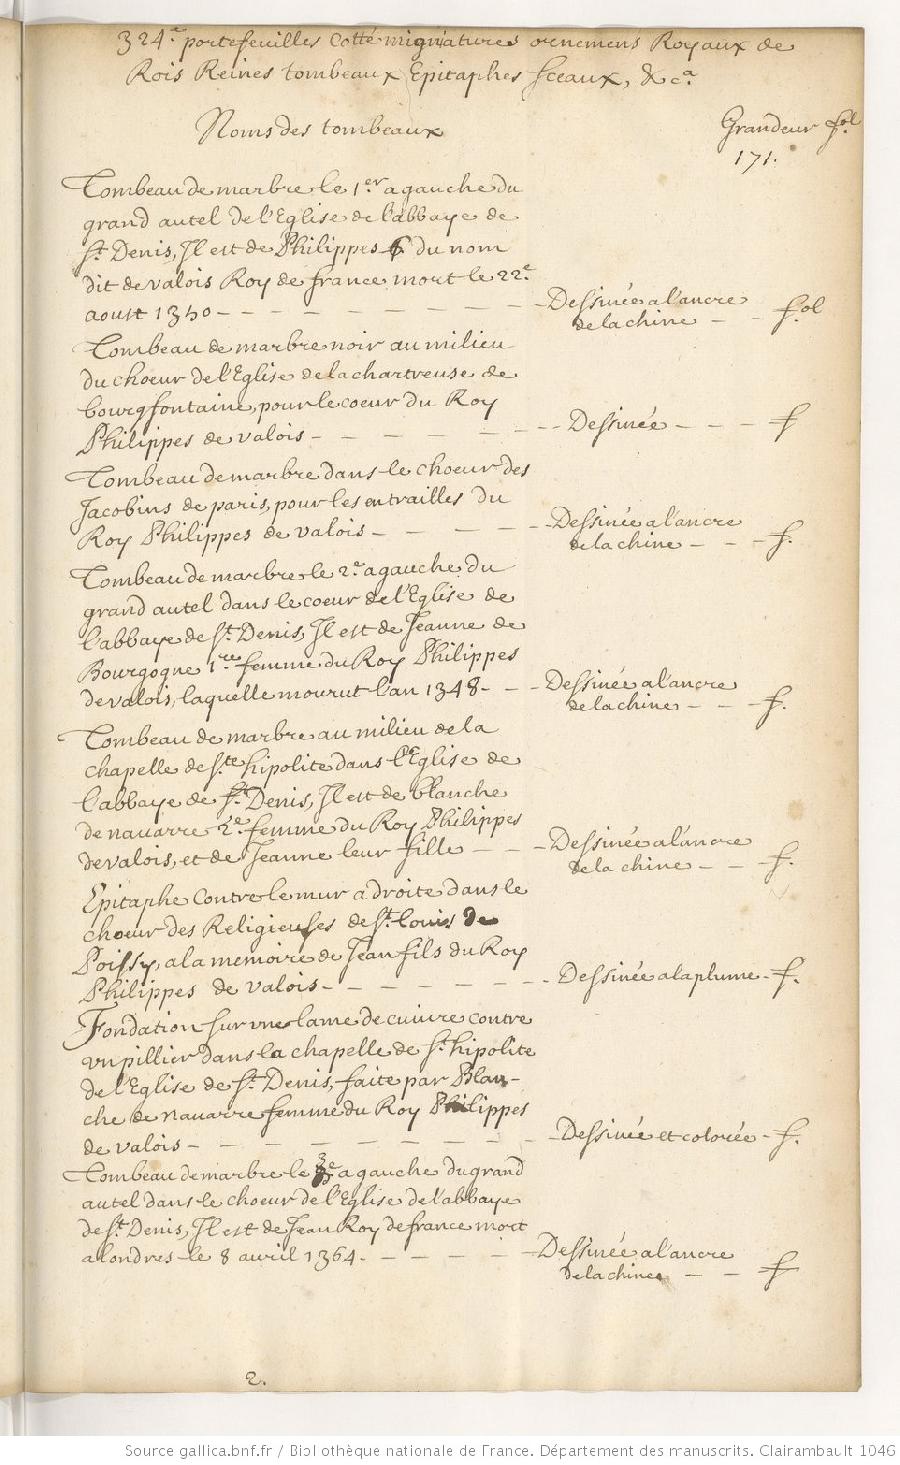 324.e portefeuilles cotté mignatures ornemens Royaux de
Rois Reines tombeaux Epitaphes sceaux, &c.a
Noms des tombeaux
Grandeur f.ol
171.
Tombeau de marbre le 1.er a gauche du
grand autel de l'Eglise de l'abbaye de
S.t Denis, Il est de Philippes 6 du nom
dit de valois Roy de france mort le 22.e
aoust 1350 - - - - - - - - - Dessinée a l'ancre
de la chine - - f.ol
Tombeau de marbre noir au milieu
du choeur de l'Eglise de la chartreuse de
bourgfontaine, pour le coeur du Roy
Philippes de valois - - - - - - - - Dessinée - - - f
Tombeau de marbre dans le choeur des
Jacobins de paris, pour les entrailles du
Roy Philippes de valois - - - - - Dessinée a l'ancre
de la chine - - - f.
Tombeau de marbre le 2.e a gauche du
grand autel dans le coeur de l'Eglise de
l'abbaye de S.t Denis, Il est de Jeanne de
Bourgogne 1.re femme du Roy Philippes
de valois, laquelle mourut l'an 1348 - - - Dessinée a l'ancre
de la chine - - - f.
Tombeau de marbre au milieu de la
chapelle de S.te hipolite dans l'Eglise de
l'abbaye de S.t Denis, Il est de blanche
de navarre 2.e femme du Roy Philippes
de valois, et de Jeanne leur fille - - - Dessinée a l'ancre
de la chine - - - f.
Epitaphe contre le mur a droite dans le
choeur des Religieuses de S.t louis de
Poissy, a la memoire de Jean fils du Roy
Philippes de valois - - - - - - - - Dessinée a la plume - f.
Fondation sur une lame de cuivre contre
un pillier dans la chapelle de S.t hipolite
de l'Eglise de S.t Denis, faite par Blan-
che de navarre femme du Roy Philippes
de valois - - - - - - - - - - Dessinée et colorée - f.
Tombeau de marbre le 3.e a gauche du grand
autel dans le choeur de l'Eglise de l'abbaye
de S.t Denis, Il est de Jean Roy de france mort
a londres le 8 avril 1364 - - - - - Dessinée a l'ancre
de la chine - - f
2.
Source gallica.bnf.fr / Bibliothèque nationale de France. Département des manuscrits. Clairambault 1046